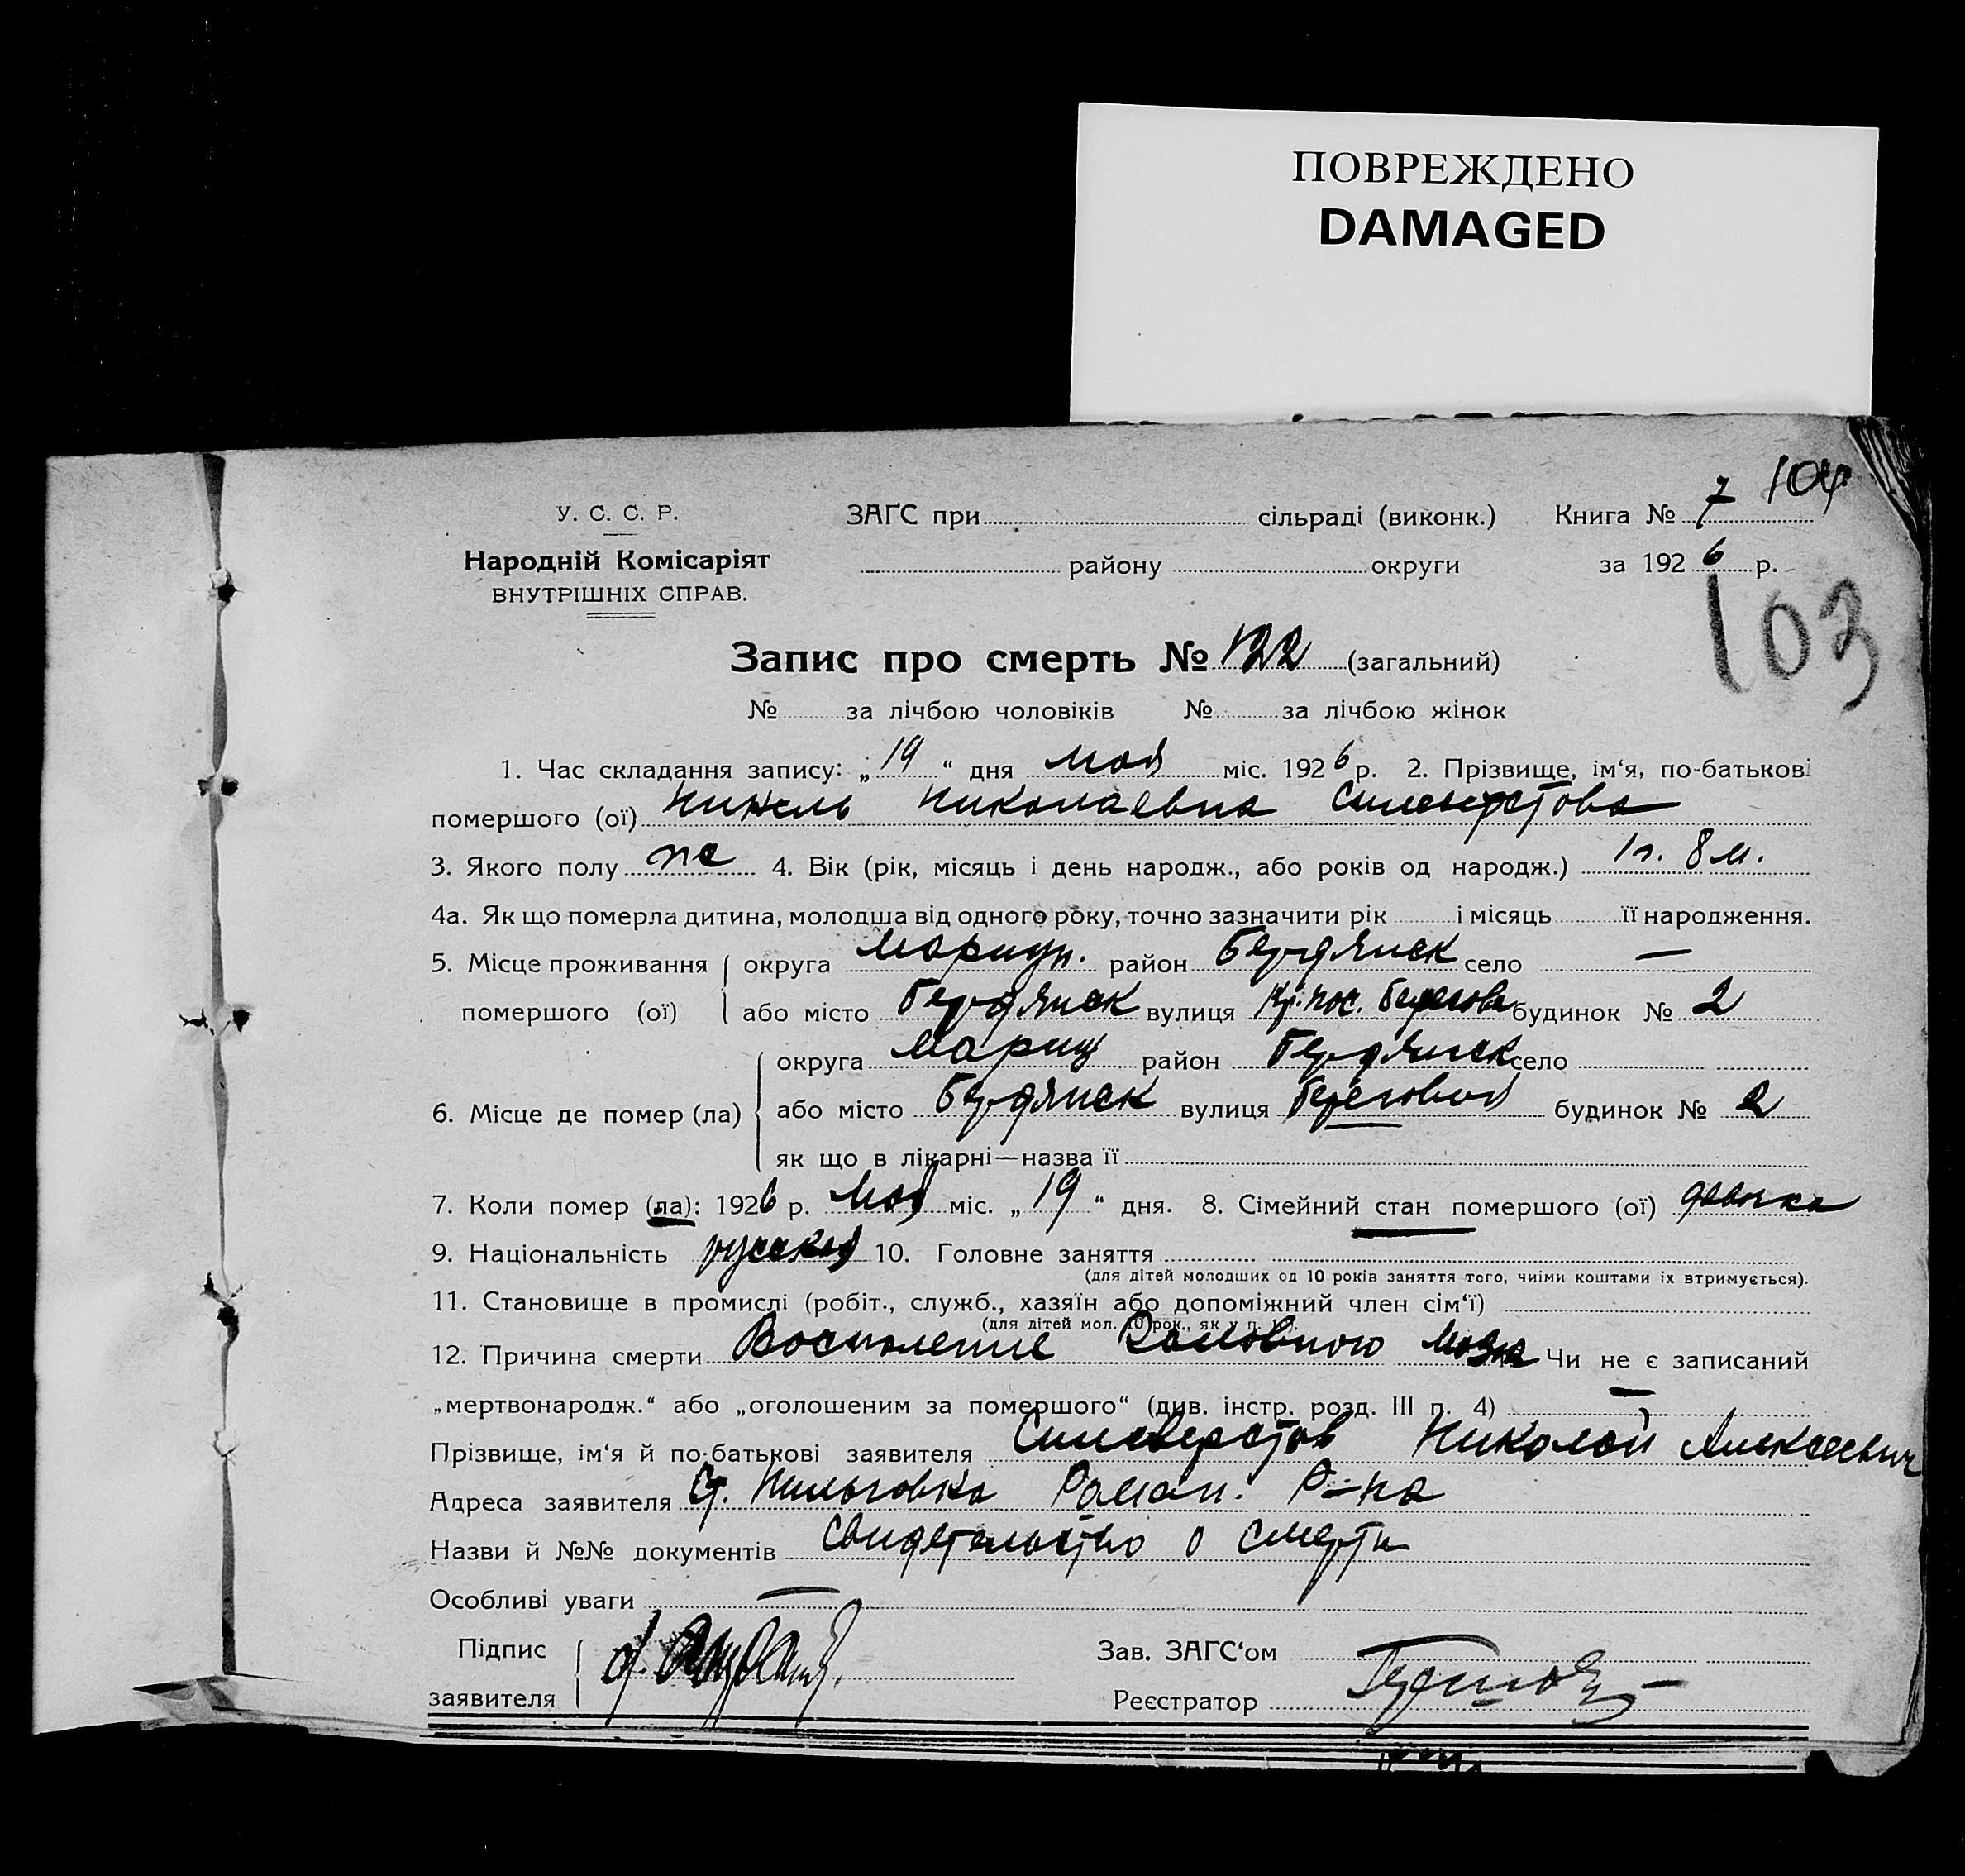 ПОВРЕЖДЕНО
DAMAGED
104
У. С. С. Р. ЗАҐС при сільраді (виконк.) Книга № 7
Народній Комісаріят району округи за 1926 р.
ВНУТРІШНІХ СПРАВ.
103
Запис про смерть № 122 (загальний)
№ за лічбою чоловіків № за лічбою жінок
1. Час складання запису: „19“ дня мая міс. 1926 р. 2. Прізвище, ім‘я, по-батькові
помершого (ої) Николаевна
3. Якого полу 4. Вік (рік, місяць і день народж., або років од народж.) 1 г. 8 м.
4а. Як що померла дитина, молодша від одного року, точно зазначити рік і місяць її народження.
5. Місце проживання округа Мариуп. район Бердянск село —
помершого (ої) або місто Бердянск вулиця будинок № 2
округа Мариуп район Бердянск село
6. Місце де помер (ла) або місто Бердянск вулиця Береговая будинок № 2
як що в лікарні—назва її
7. Коли помер (ла): 1926 р. мая міс. „19“ дня. 8. Сімейний стан помершого (ої)
9. Національність русская 10. Головне заняття
(для дітей молодших од 10 років заняття того, чиїми коштами їх втримується).
11. Становище в промислі (робіт., служб., хазяїн або допоміжний член сім‘ї)
(для дітей мол. 10 рок., як у п. 10).
12. Причина смерти Воспаление головного мозга Чи не є записаний
„мертвонародж.“ або „оголошеним за помершого“ (див. інстр. розд. III п. 4) —
Прізвище, ім‘я й по-батькові заявителя Силеверстов Николай Алексеевич
Адреса заявителя Роман. Р-на
Назви й №№ документів свидетельство о смерти
Особливі уваги —
Підпис Зав. ЗАҐС‘ом
заявителя Реєстратор